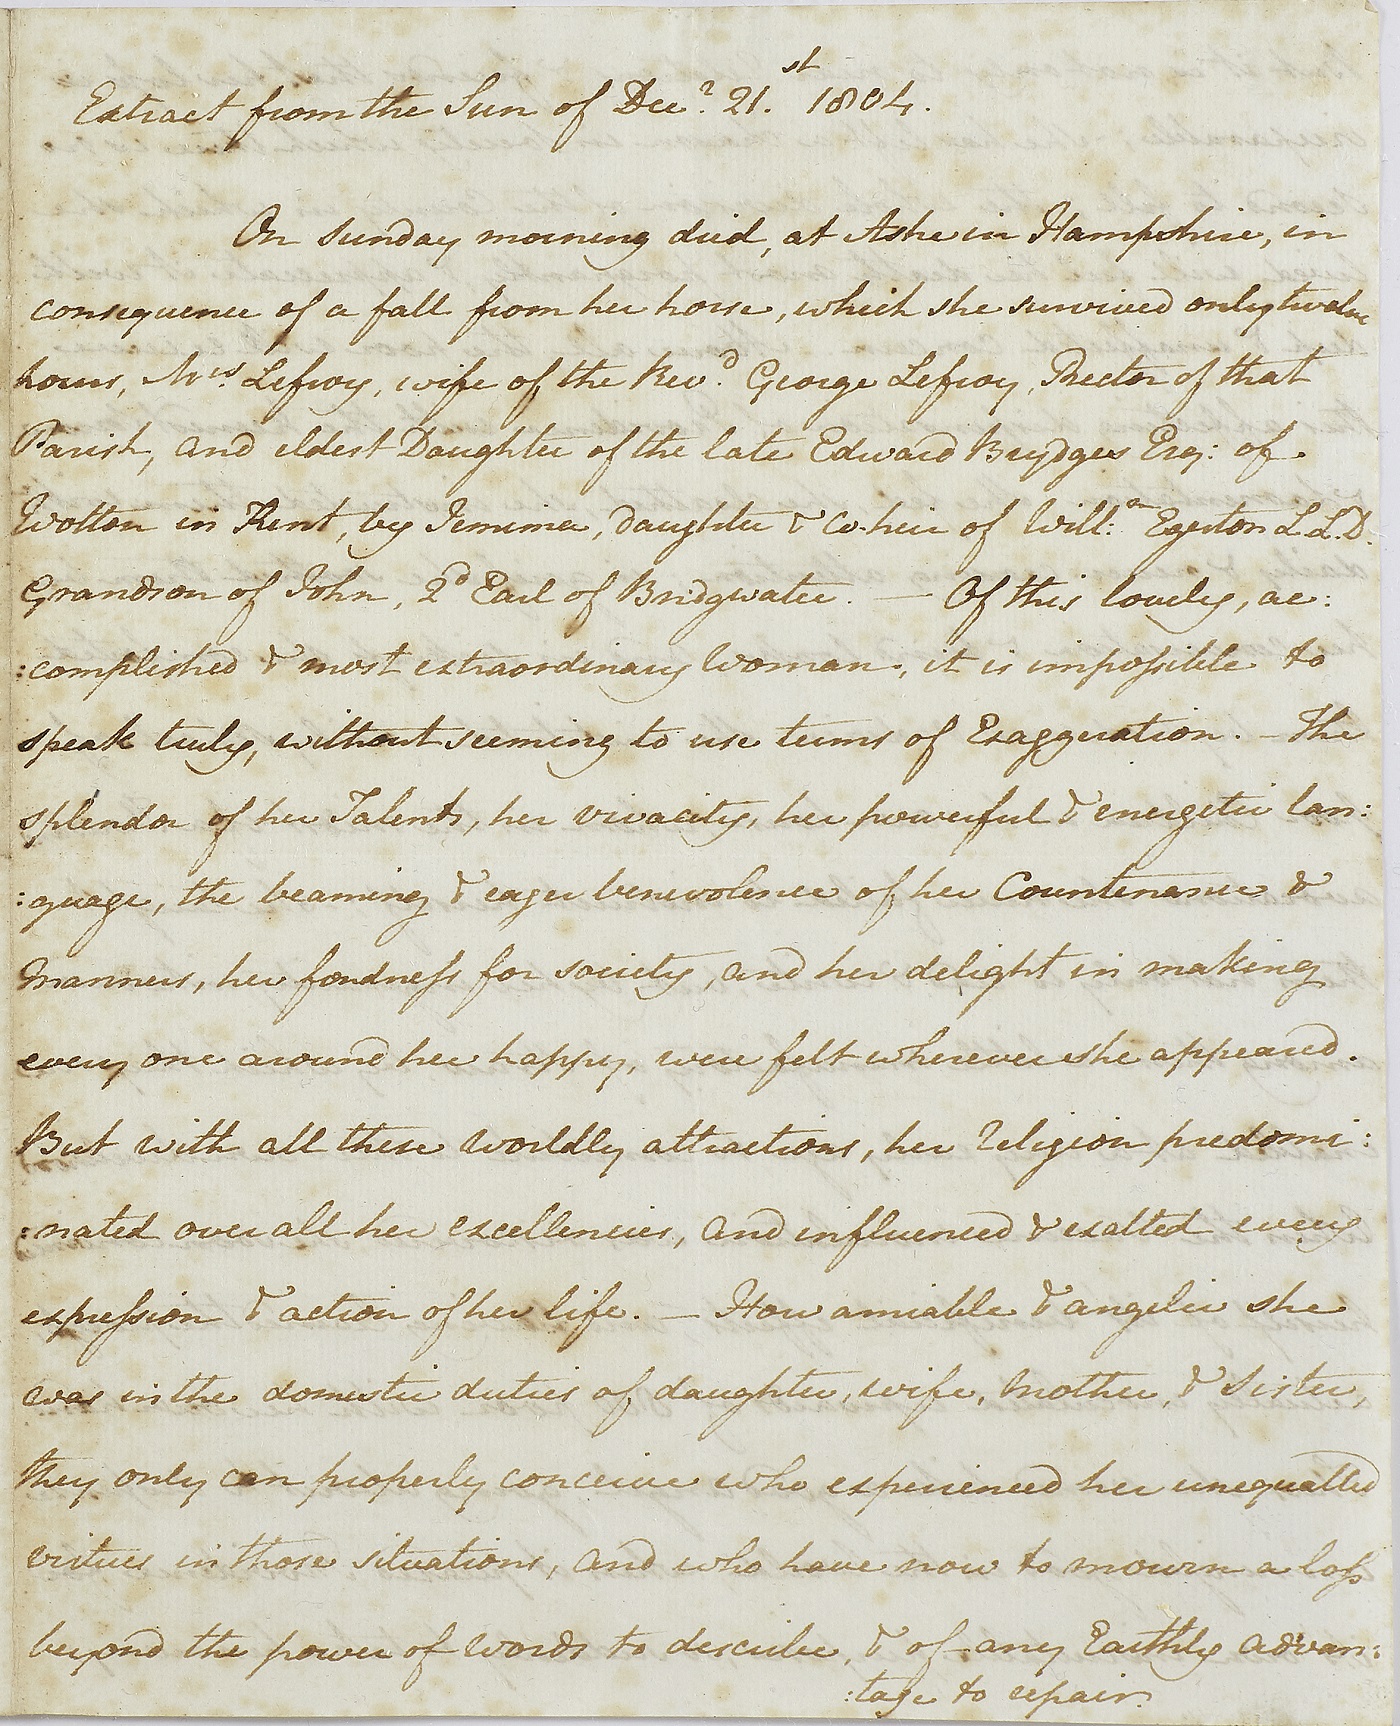 Extract from the Sun of Decr. 21.st 1804.
On Sunday morning died, at Ashe in Hampshire, in
consequence of a fall from her horse, which she survived only twelve
hours, Mrs. Lefroy, wife of the Revd. George Lefroy, Rector of that
Parish, and eldest Daughter of the late Edward Brydges Esq: of
Wotton in Kent, by Jemima, daughter & co-heir of Will:m Egerton L.L.D.
Grandson of John, 2d Earl of Bridgwater. — Of this lovely, ac:
:complished & most extraordinary Woman, it is impossible to
speak truly, without seeming to use terms of Exaggeration. – The
splendor of her Talents, her vivacity, her powerful & energetic lan:
:guage, the beaming & eager benevolence of her Countenance &
Manners, her fondness for society, and her delight in making
every one around her happy, were felt wherever she appeared.
But with all these worldly attractions, her Religion predomi:
:nated over all her excellencies, and influenced & exalted every
expression & action of her life. — How amiable & angelic she
was in the domestic duties of daughter, wife, Mother, & Sister,
they only can properly conceive who experienced her unequalled
virtues in those situations, and who have now to mourn a loss
beyond the power of words to describe, & of any Earthly advan:
:tage to repair.